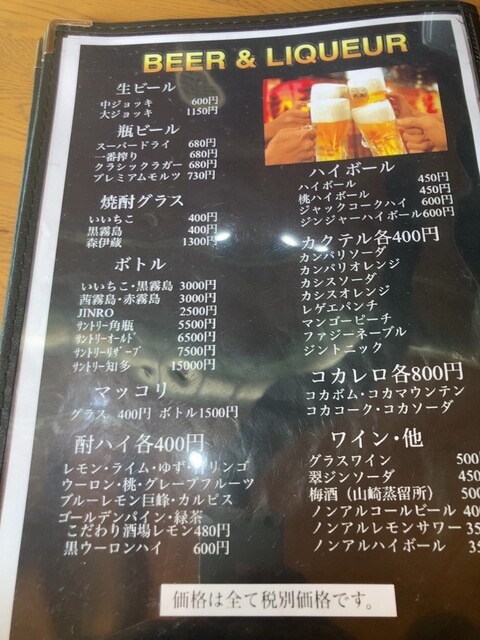 BEER & LIQUEUR
生ビール
中ジョッキ 600円
大ジョッキ 1150円
瓶ビール
スーパードライ 680円
一番搾り 680円
クラシックラガー 680円
プレミアムモルツ 730円
焼酎グラス
いいちこ 400円
黒霧島 400円
森伊蔵 1300円
ボトル
いいちこ・黒霧島 3000円
茜霧島・赤霧島 3000円
JINRO 2500円
サントリー角瓶 5500円
サントリーオールド 6500円
サントリーリザーブ 7500円
サントリー知多 15000円
マッコリ
グラス 400円 ボトル1500円
酎ハイ各400円
レモン・ライム・ゆず・リンゴ
ウーロン・桃・グレープフルーツ
ブルーレモン巨峰・カルピス
ゴールデンパイン・緑茶
こだわり酒場レモン480円
黒ウーロンハイ 600円
ハイボール
ハイボール 450円
桃ハイボール 450円
ジャックコークハイ 600円
ジンジャーハイボール600円
カクテル各400円
カンパリソーダ
カンパリオレンジ
カシスソーダ
カシスオレンジ
レゲエパンチ
マンゴーピーチ
ファジーネーブル
ジントニック
コカレロ各800円
コカボム・コカマウンテン
コカコーク・コカソーダ
ワイン・他
グラスワイン 500
翠ジンソーダ 450
梅酒（山崎蒸留所） 500
ノンアルコールビール 400
ノンアルレモンサワー 35
ノンアルハイボール 35
価格は全て税別価格です。